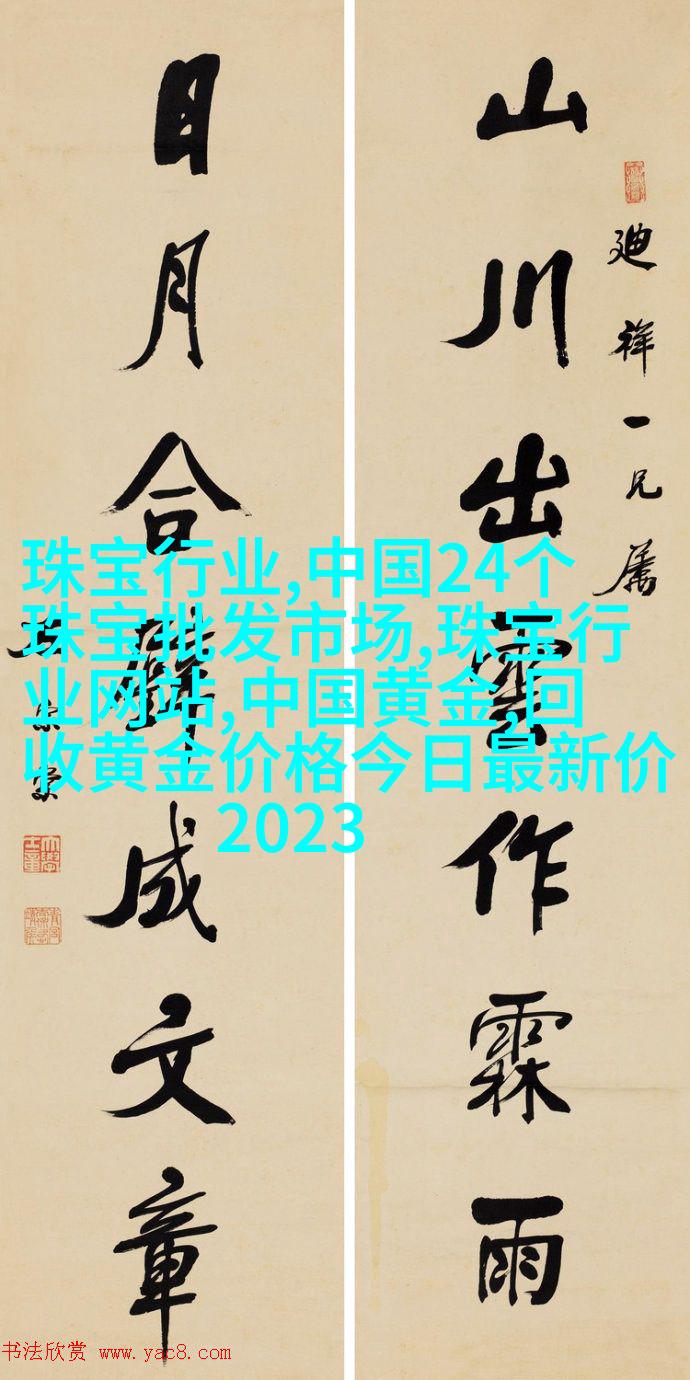 山川出雲作霖雨
廸祥一兄屬
日月合璧成文章
珠宝行业,中国24个
珠宝批发市场,珠宝行
业网站,中国黄金,回
收黄金价格今日最新价
2023
书法欣赏 www.yac8.com